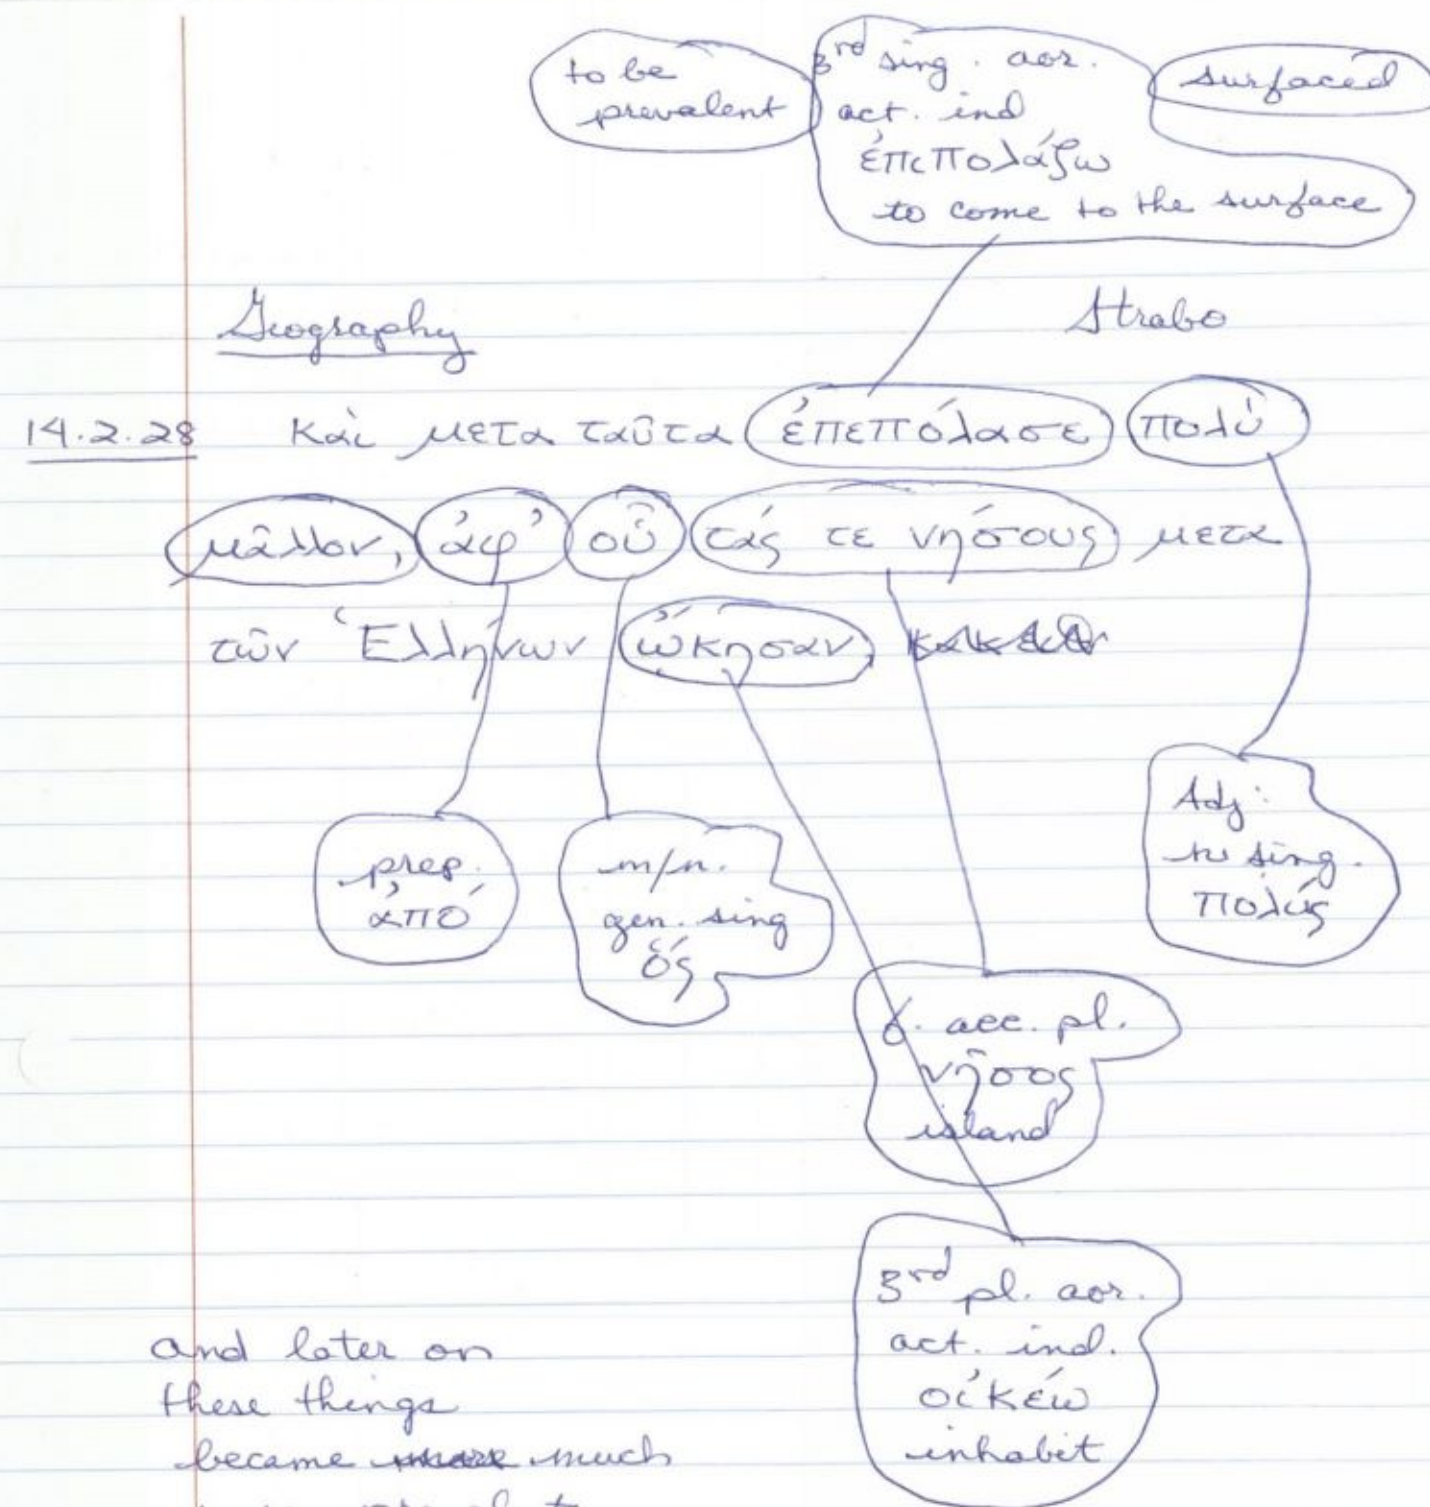 to be
prevalent
3rd sing. aor.
act. ind
ἐπιπολάζω
to come to the surface
surfaced
Geography
Strabo
14.2.28 Καὶ μετα ταῦτα ἐπεπόλασε πολύ
μᾶλλον, ἀφ' οὗ τάς τε νήσους μετα
τῶν Ἑλλήνων ᾤκησαν
prep.
ἀπό
m/n.
gen. sing
ὅς
Adj.
n sing.
πολύς
f. acc. pl.
νῆσος
island
3rd pl. aor.
act. ind.
οἰκέω
inhabit
and later on
these things
became much